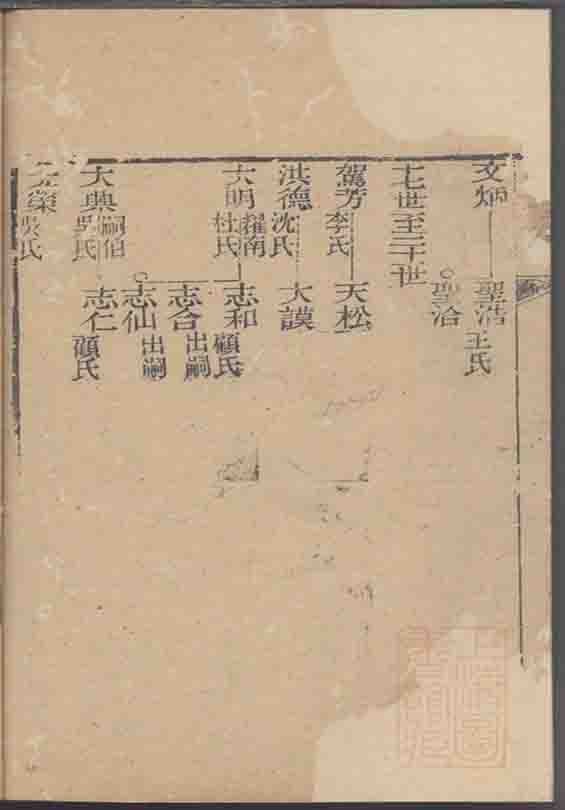 文炳
聖浩 王氏
聖治
七世至二十世
駕芳 李氏
天松
洪德 沈氏
大謨
大明 耀南 杜氏
志和 顧氏
志合 出嗣
志仙 出嗣
大典 嗣伯 吳氏
志仁 顧氏
榮 吳氏